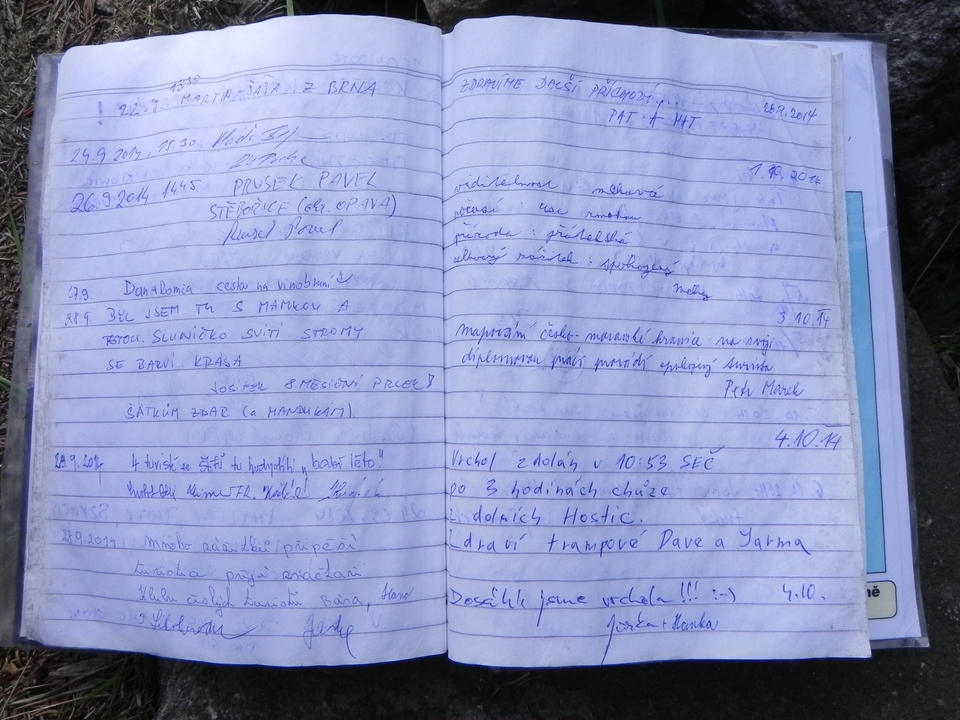 13³⁵
! 22.9. MARTIN ŠÁŠA Z BRNA
24.9.2014, 15.30
26.9.2014 1445 PRUSEK PAVEL
ŠTĚBOŘICE (okr. OPAVA)
Prusek Pavel
27.9. Dan+Romča cestou na vinobraní
28.9. BYL JSEM TU S MAMKOU A
TETOU. SLUNÍČKO SVÍTÍ STROMY
SE BARVÍ KRÁSA
8 MĚSÍČNÍ PRCEK
ŠÁTKŮM ZDAR (a MANDUKÁM)
28.9.2014 4 turisté ze tu hodnotili "babí léto"
28.9.2014 Mnoho zážitků, přípěší
turistice přejí značkaři
Klubu českých turistů Bára, Hana
ZDRAVÍME DALŠÍ PŘÍCHOZÍ...
PAT A MAT 28.9.2014
1.10.2014
viditelnost : mlhavá
počasí : na
příroda : přátelská
celkový zážitek : spokojený
3.10.14
mapování česko-moravské hranice na svoji
diplomovou práci provádí spokojený turista
Petr Marek
4.10.14
Vrchol zdolán v 10:53 SEČ
po 3 hodinách chůze
z dolních Hostic.
Zdraví trampové Dave a Jarma
Dosáhli jsme vrcholu!!! :-) 4.10.
Jirka + Hanka
ně